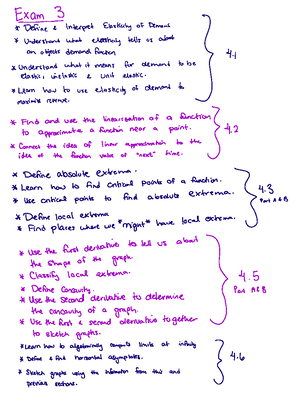 Exam 3
* Define & Interpret Elasticity of Demand
* Understand what elasticity tells us about
an objects demand function
* Understand what it means for demand to be
elastic, inelastic & unit elastic.
* Learn how to use elasticity of demand to
maximize revenue.
4.1
* Find and use the linearization of a function
to approximate a function near a point.
* Connect the idea of linear approximation to the
idea of the function value at "next" time.
4.2
* Define absolute extrema.
* Learn how to find critical points of a function.
* Use critical points to find absolute extrema.
* Define local extrema
* Find places where we "might" have local extrema.
4.3
Part A & B
* Use the first derivative to tell us about
the shape of the graph.
* Classify local extrema.
* Define Concavity.
* Use the second derivative to determine
the concavity of a graph.
* Use the first & second derivative together
to sketch graphs.
4.5
Part A & B
* Learn how to algebraically compute limits at infinity
* Define & find horizontal asymptotes.
* Sketch graphs using the information from this and
previous sections.
4.6